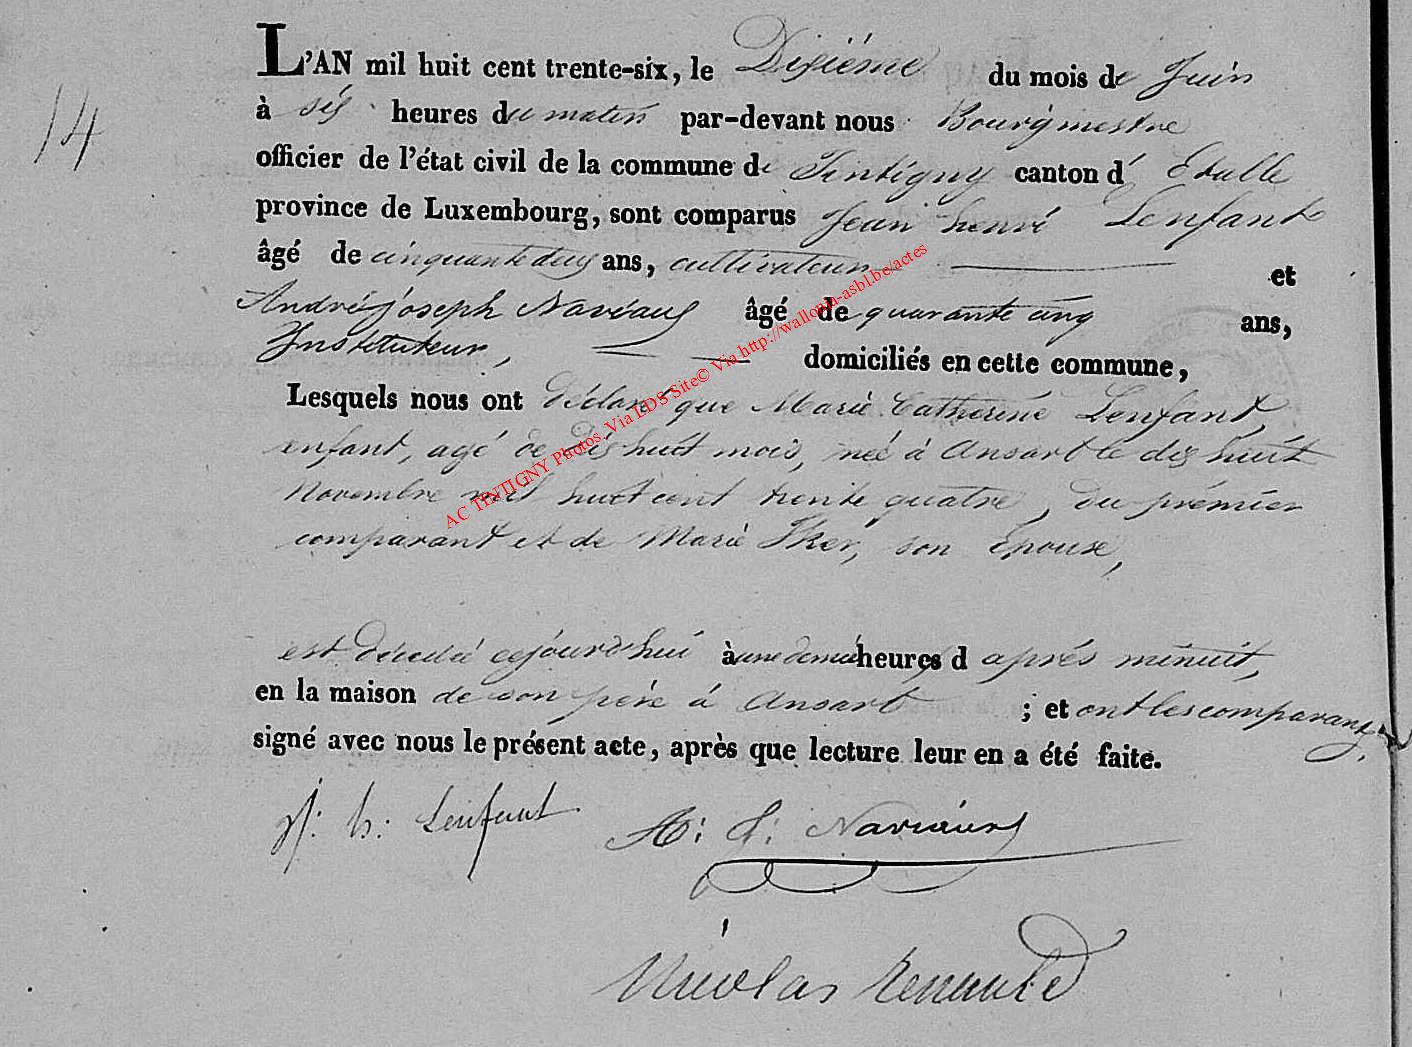 L'AN mil huit cent trente-six, le Dixiéme du mois de Juin
14
à six heures du matin par-devant nous Bourgmestre
officier de l'état civil de la commune de Tintigny canton d' Etalle
province de Luxembourg, sont comparus Jean henri Lenfant
âgé de cinquante deux ans, cultivateur et
André joseph Naviaux âgé de quarante cinq ans,
Instituteur, domiciliés en cette commune,
Lesquels nous ont déclaré que Marie Catherine Lenfant,
enfant, agé de dix huit mois, née à Ansart le dix huit
Novembre mil huit cent trente quatre, du prémier
comparant et de Marie Iker, son Epouse,
est décédée cejourd'hui à une demie heures d après minuit,
en la maison de son père à Ansart ; et ont les comparans
signé avec nous le présent acte, après que lecture leur en a été faite.
j: h: Lenfant A: J: Naviaux
Nicolas
AC TINTIGNY Photos. Via LDS Site© Via http://wallonia-asbl.be/actes